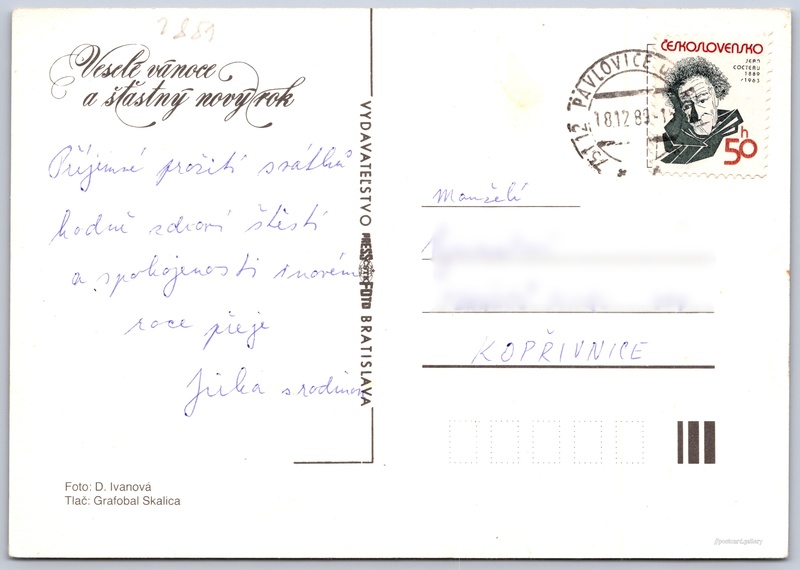 1889
Veselé vánoce
a šťastný nový rok
Příjemné prožití svátků
hodně zdraví štěstí
a spokojenosti v novém
roce přeje
Jirka s rodinou
Foto: D. Ivanová
Tlač: Grafobal Skalica
VYDAVATEĽSTVO PRESSFOTO BRATISLAVA
751 12 PAVLOVICE U
18.12.89-1
ČESKOSLOVENSKO
JEAN
COCTEAU
1889
1963
50h
Manželé
KOPŘIVNICE